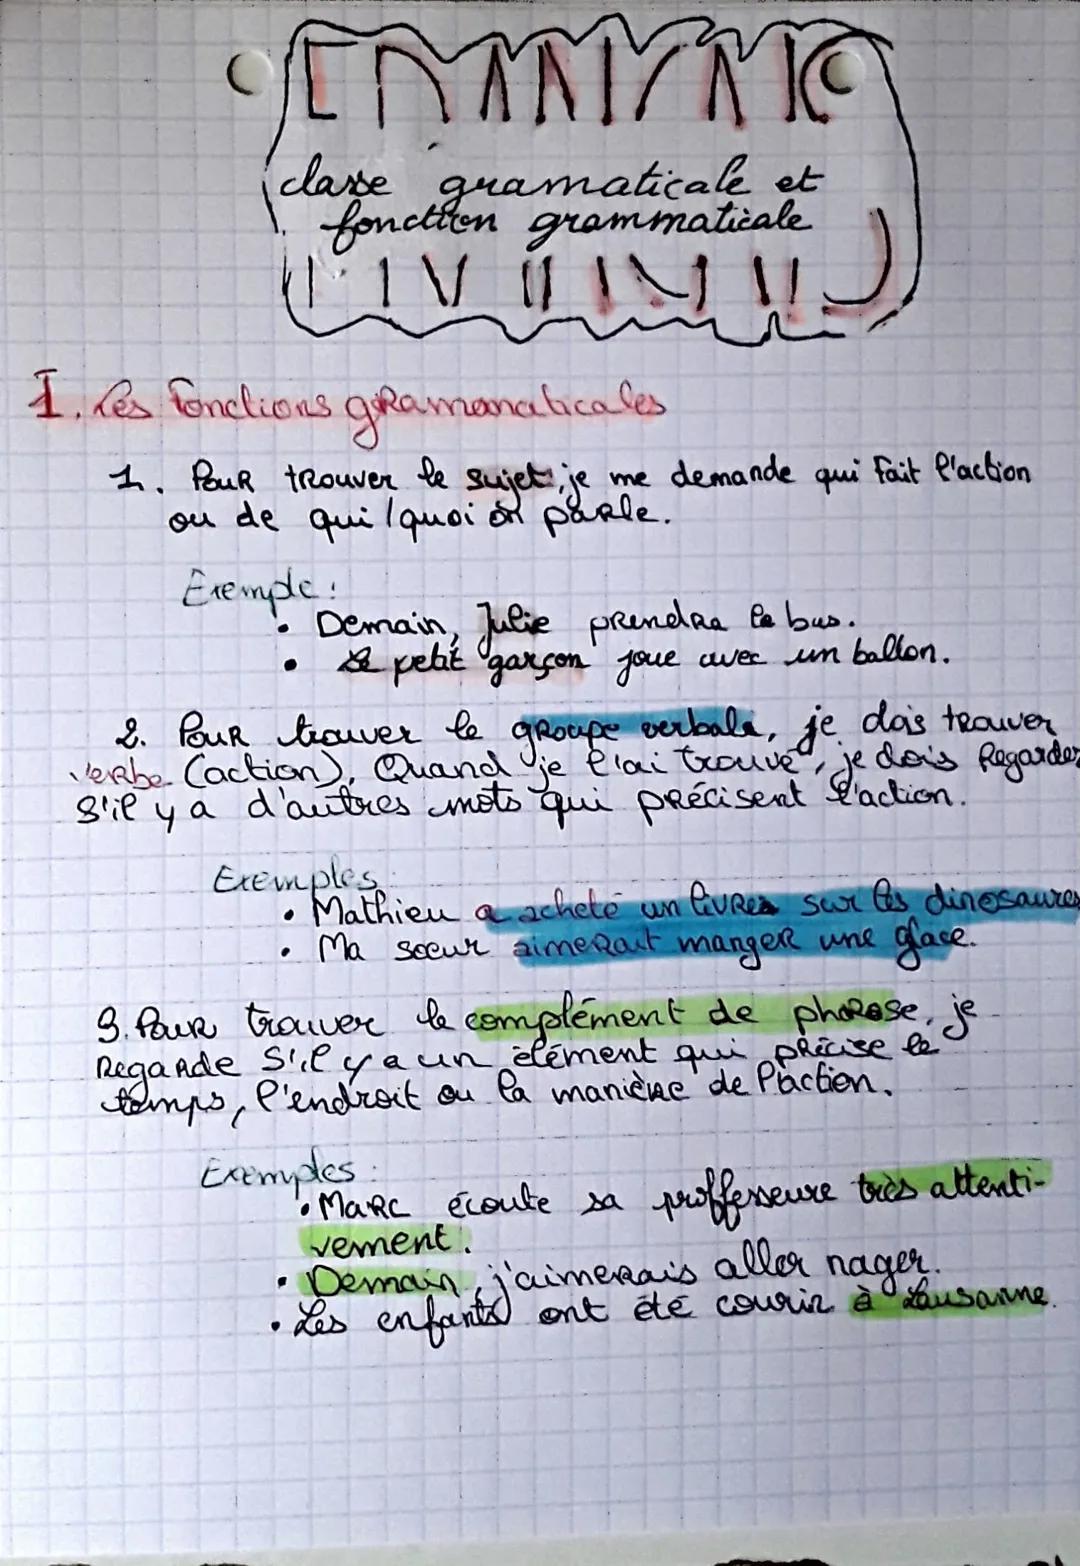 classe gramaticale et
fonction grammaticale
I. Les Fonctions gramamaticales
1. Pour trouver le sujet, je me demande qui fait l'action
ou de qui/quoi on parle.
Exemple :
• Demain, Julie prendra le bus.
• Le petit garçon joue avec un ballon.
2. Pour trouver le groupe verbale, je dois trouver
verbe (action). Quand je l'ai trouvé, je dois Regarder
s'il y a d'autres mots qui précisent l'action.
Exemples :
• Mathieu a acheté un livre sur les dinosaures
• Ma soeur aimerait manger une glace.
3. Pour trouver le complément de phrase, je
Regarde s'il y a un élément qui précise le
temps, l'endroit ou la manière de l'action.
Exemples :
• Marc écoute sa proffesseure très attenti-
vement.
• Demain, j'aimerais aller nager.
• Les enfants ont été courir à Lausanne.